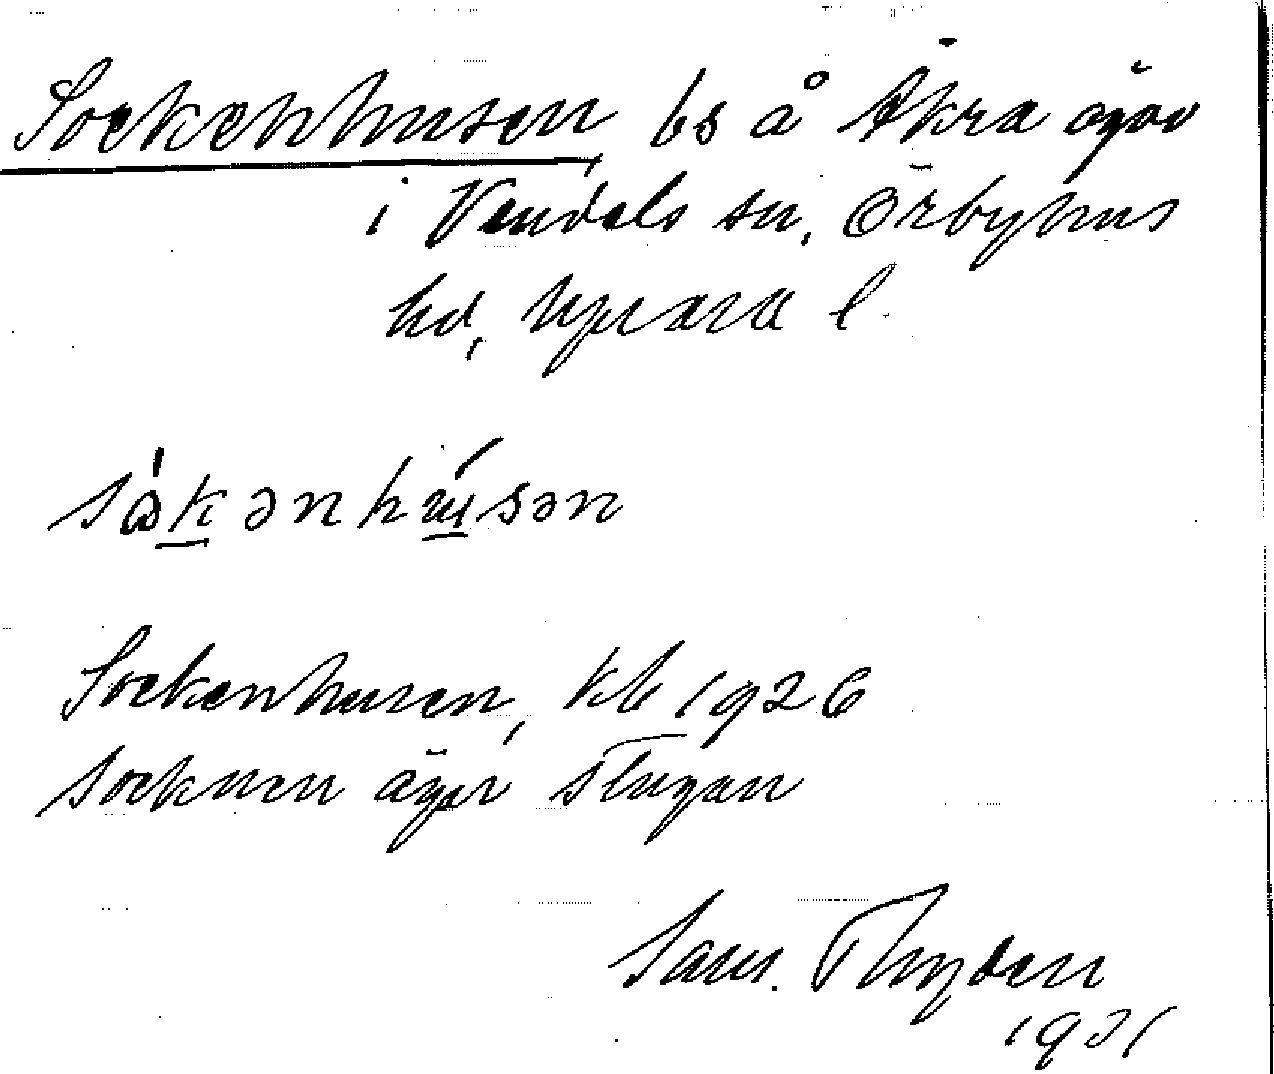 Sockenhusen, bs å Åkra ägor
i Vendels sn, Örbyhus
hd, Uppsala l.
såkənhu̲sən
Sockenhusen, kb 1926
Socknen äger stugan
Sam. Thyden